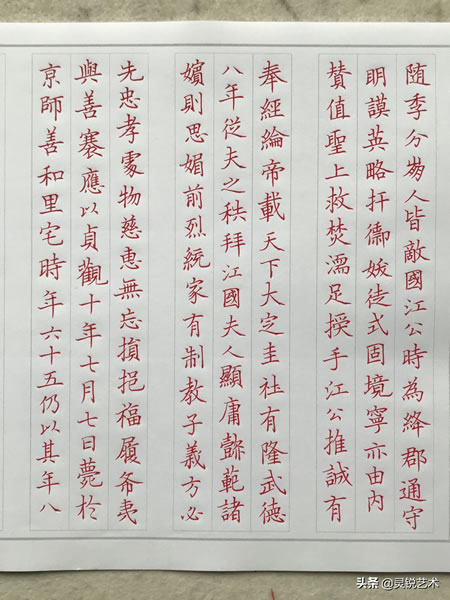 随季分崩人皆敵國江公時為絳郡通守
明謨英略扞媛徒式固境寧亦由内
賛值聖上救焚濡足授手江公推誠有
奉經綸帝載天下大定圭社有隆武德
八年從夫之秩拜江國夫人顯庸懿範諸
嬪則思媚前烈統家有制教子義方必
先忠孝處物慈惠無忘損挹福履夷
與善褰應以貞觀十年七月七日薨於
京師善和里宅時年六十五仍以其年八
头条 @灵锐艺术